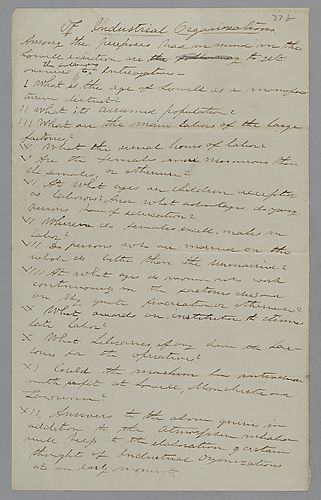 378
Of Industrial Organizations
Among the purposes had in mind in the
Lowell expedition are the following to get
answers to the following interrogations—
I What is the age of Lowell as a manufac-
turing district?
II What its assumed population?
III What are the main labors of the large
factories?
IV What the usual hours of labor?
V Are the females more numerous than
the males, or otherwise?
VI At what ages are children accepted
as laborers? And what advantages do young
persons have of education?
VII Wherein do females excel males in
labor?
VIII Do persons who are married on the
whole do better than the Unmarried?
VIIII At what ages do women who work
continuously in the factories
or they quite otherwise?
X What awards are instituted to stimu-
late labor?
X What Libraries if any have the
for the operatives?
XI Could the machine be introduced
with profit at Lowell, Manchester and
Lawrence?
XII, Answers to the above queries in
addition to the Atmosphere inhaled
will help to the elaboration of certain
thought of Industrial Organizations
at an early moment.